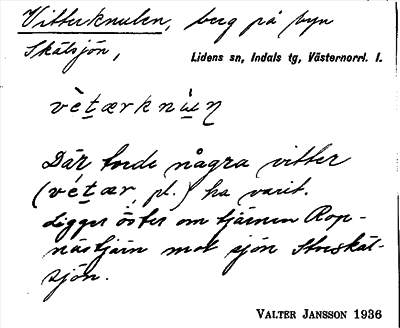 Vitterknulen, berg på byn
Skälsjön,
Lidens sn, Indals tg, Västernorrl. l.
vètærknù̱ṉ
Där torde några vitter
(vétær, pl.) ha varit.
Ligger öster om tjärnen Rop-
nästjärn mot sjön Storskäl-
sjön.
VALTER JANSSON 1936